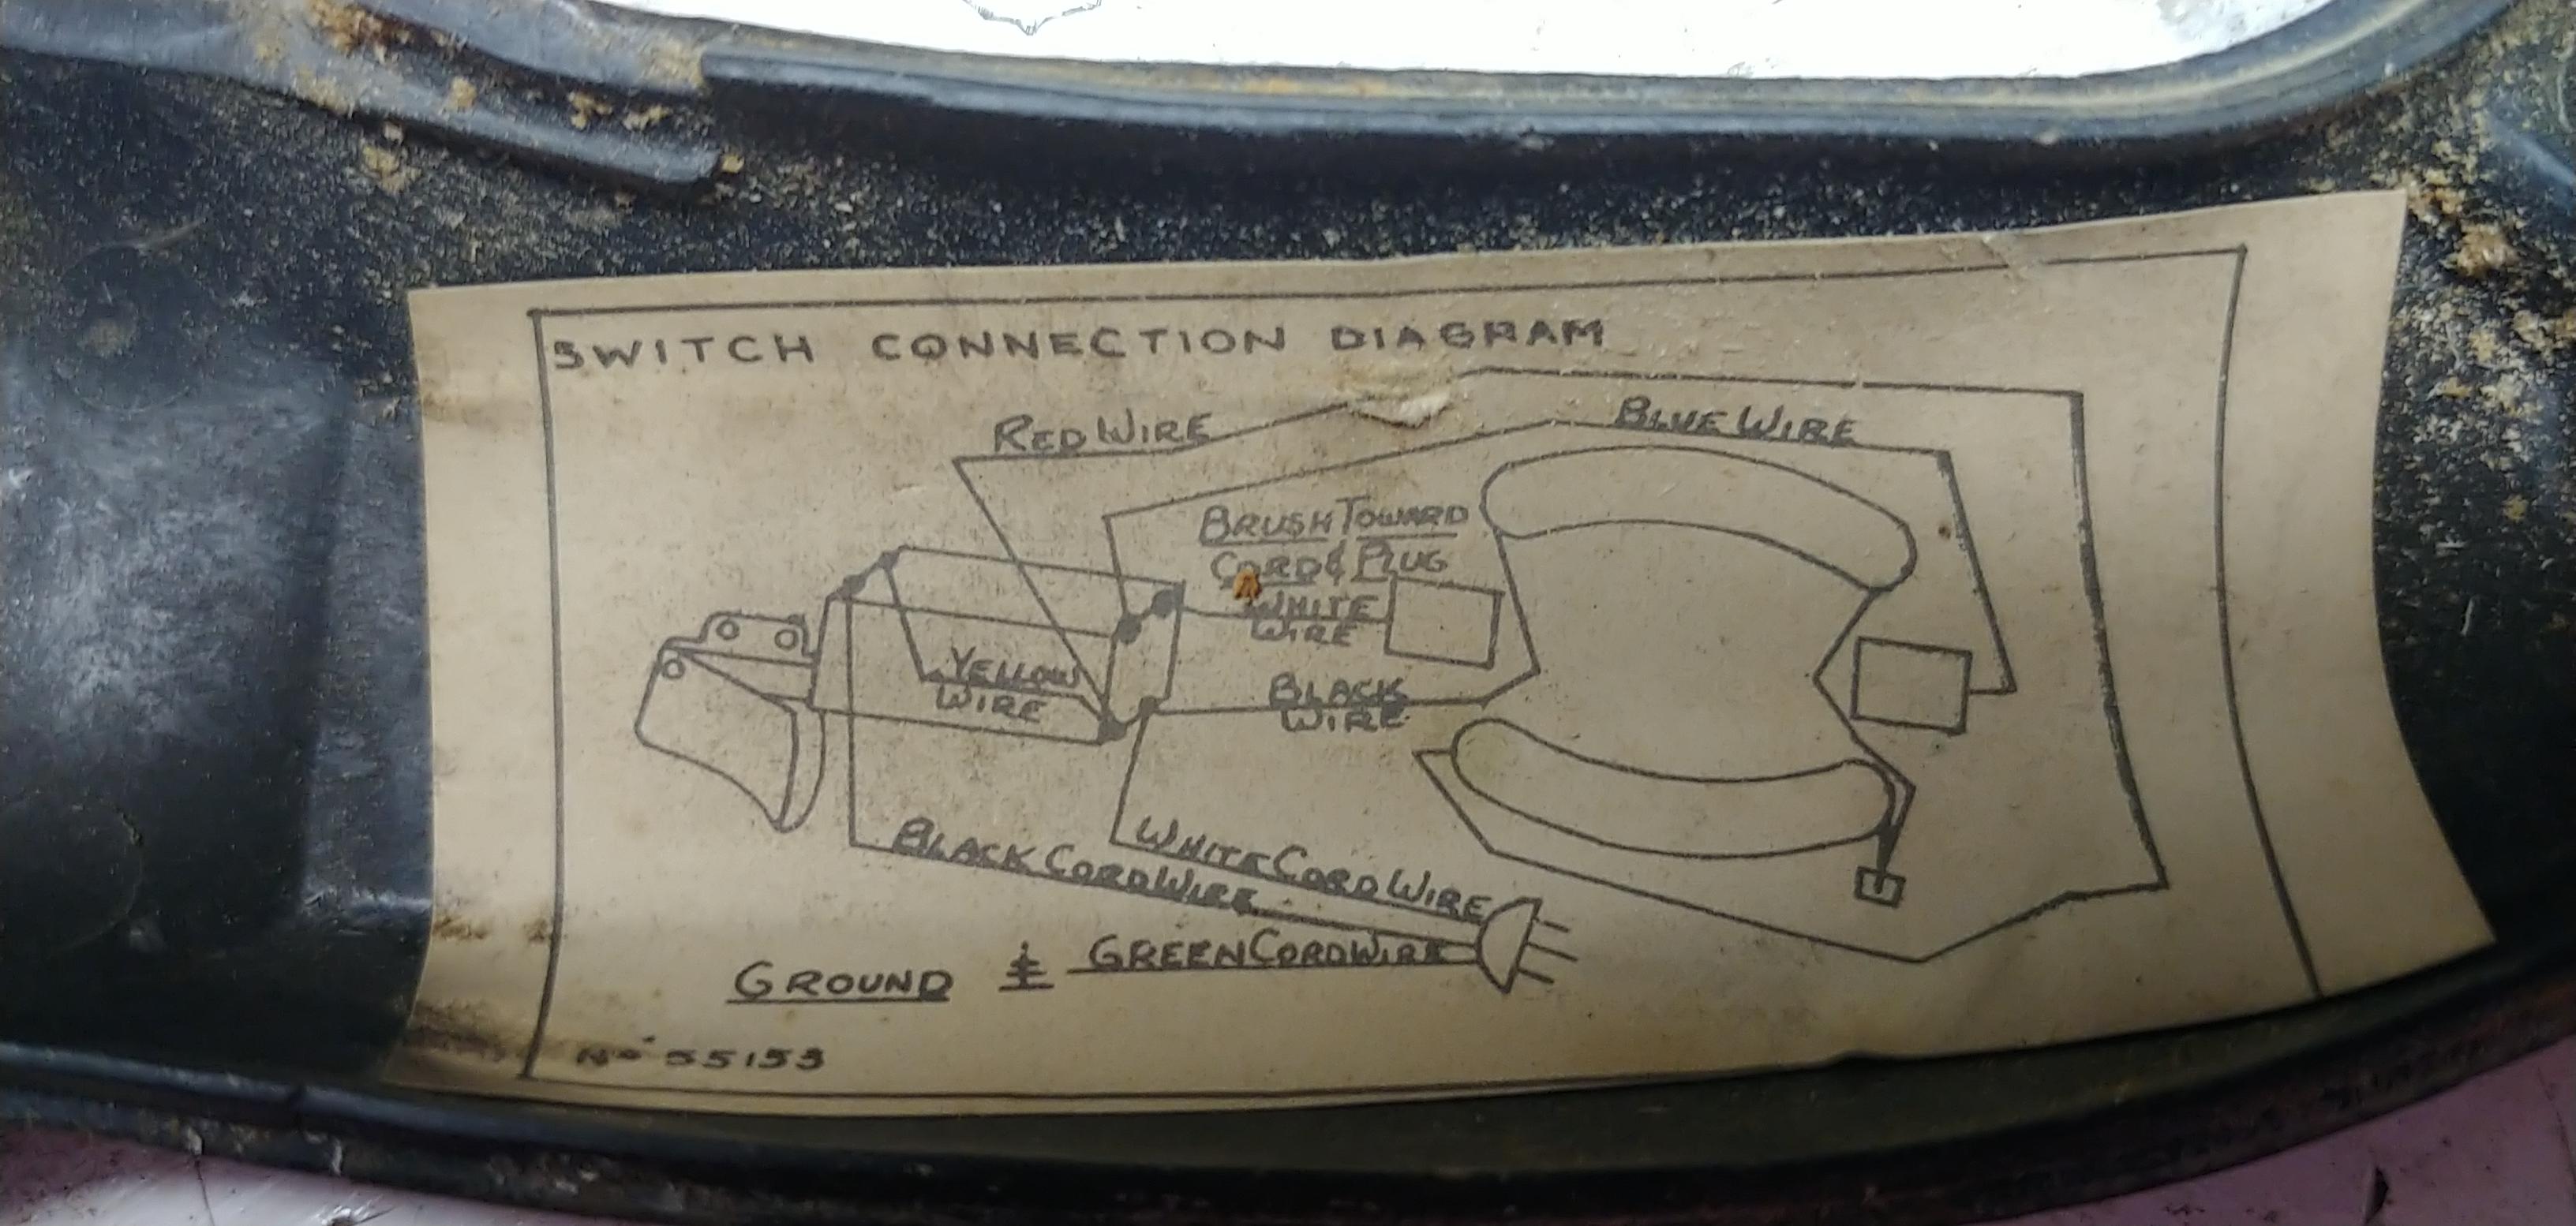 SWITCH CONNECTION DIAGRAM
RED WIRE
BLUE WIRE
BRUSH TOWARD
CORD & PLUG
WHITE
WIRE
YELLOW
WIRE
BLACK
WIRE
BLACK CORD WIRE
WHITE CORD WIRE
GROUND
GREEN CORD WIRE
No 55153